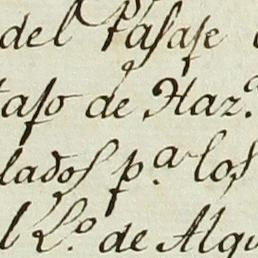 del Pasaje
taso de Haz.ª
lados p.ª los
l L.º de Alqu